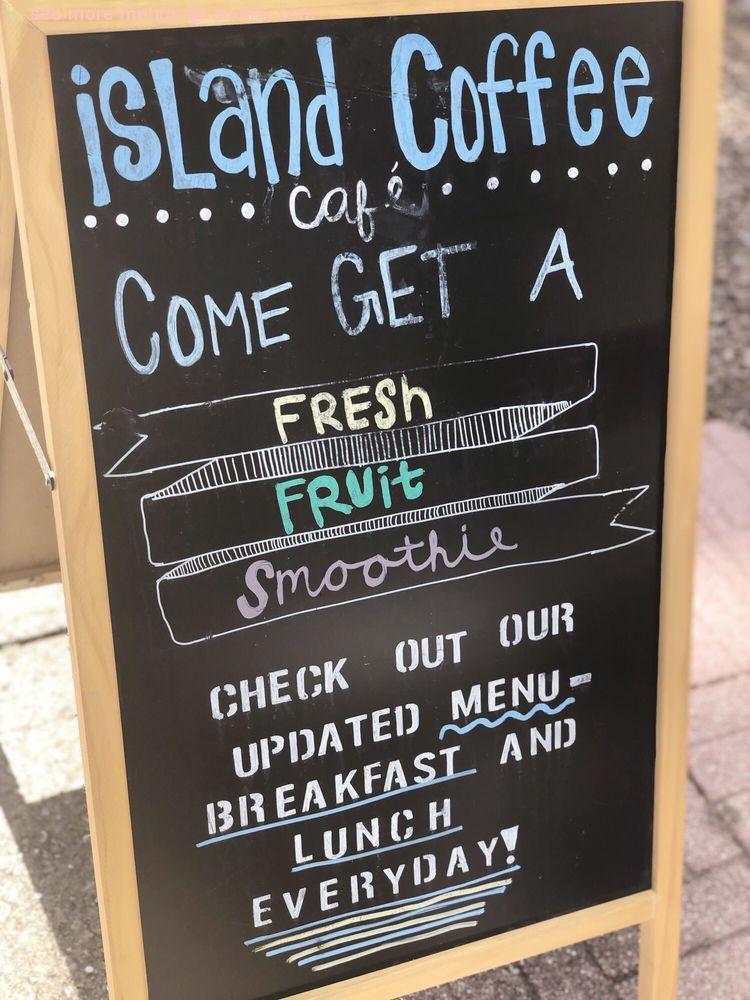 island Coffee
café
COME GET A
FRESh
FRUit
Smoothie
CHECK OUT OUR
UPDATED MENU-
BREAKFAST AND
LUNCH
EVERYDAY!